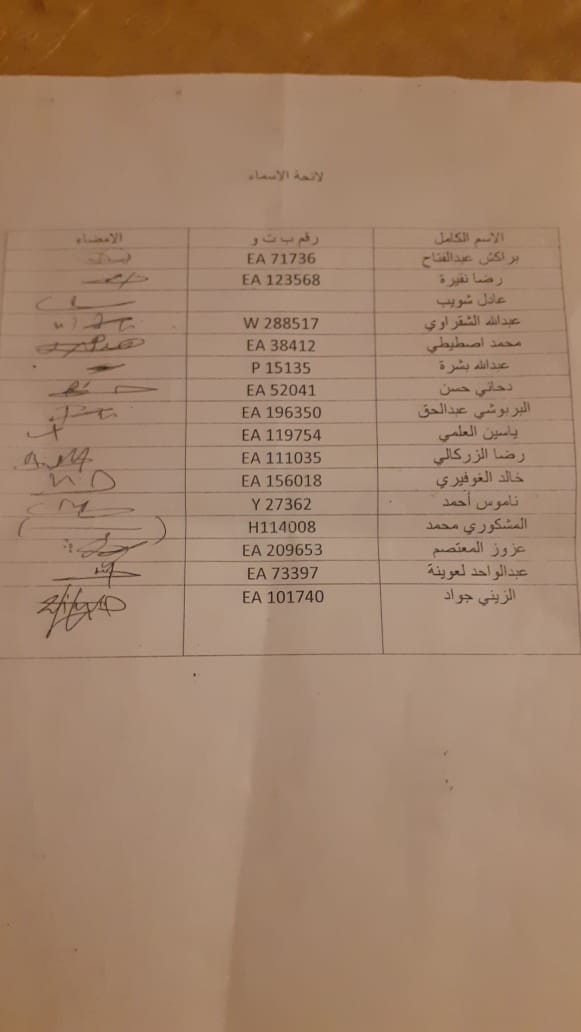 لائحة الاسماء
الاسم الكامل رقم ب ت و الامضاء
براكش عبدالفتاح EA 71736
رضا نفيرة EA 123568
عادل شويب
عبدالله الشقراوي W 288517
محمد اصطيطي EA 38412
عبدالله بشرة P 15135
دحاني حسن EA 52041
البربوشي عبدالحق EA 196350
ياسين العلمي EA 119754
رضا الزركالي EA 111035
خالد الغوفيري EA 156018
ناموس أحمد Y 27362
المشكوري محمد H114008
عزوز المعتصم EA 209653
عبدالواحد لعوينة EA 73397
الزيني جواد EA 101740